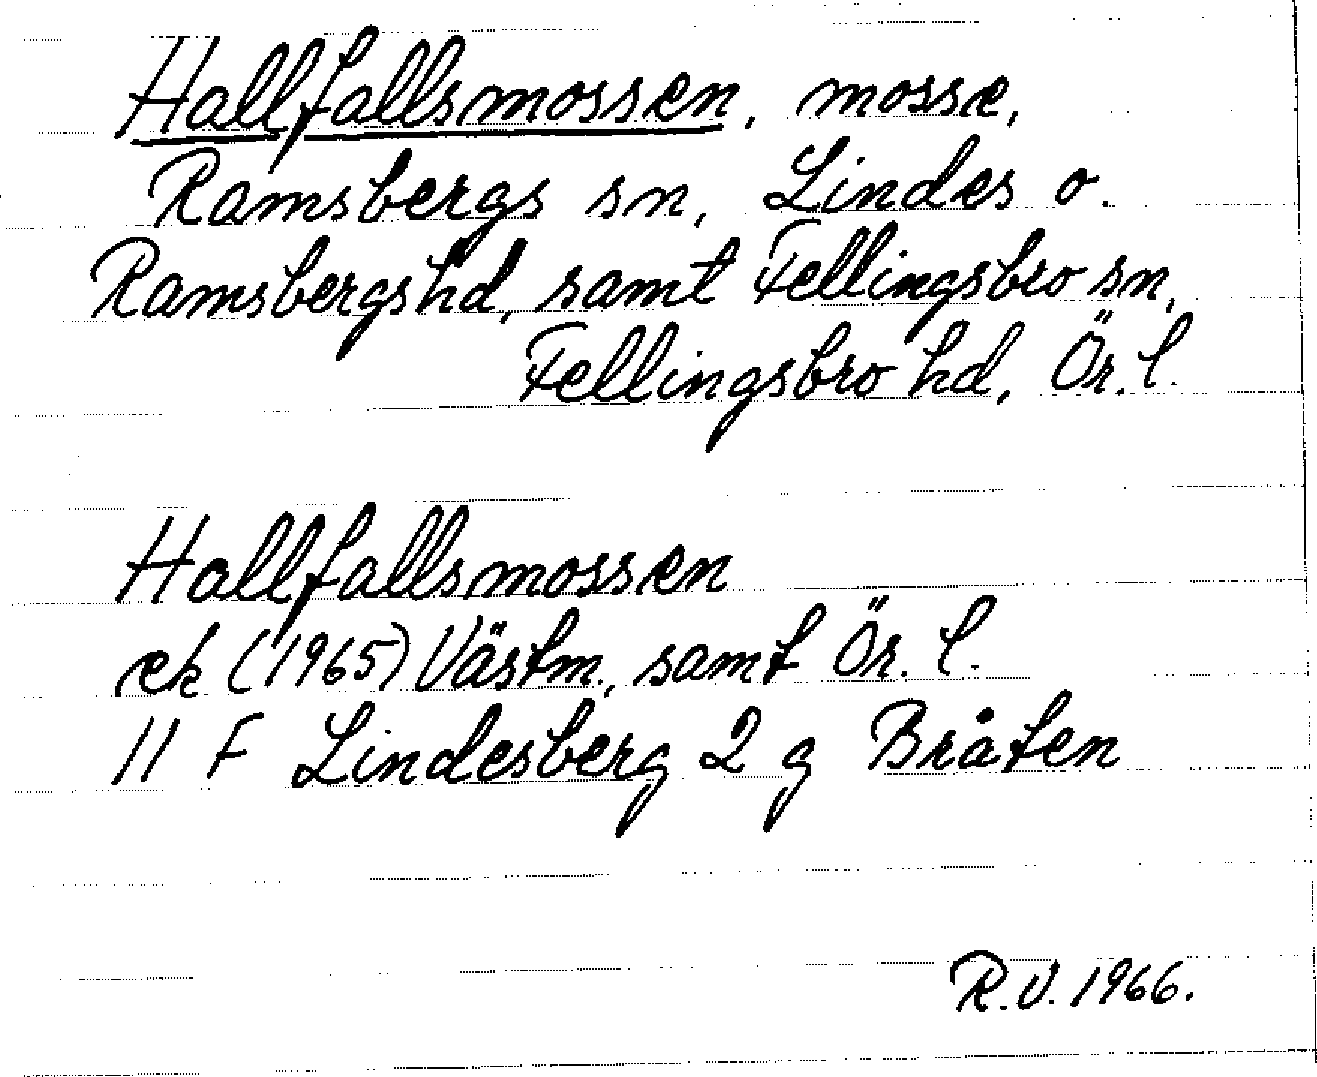 Hallfallsmossen, mosse,
Ramsbergs sn, Lindes o.
Ramsbergs hd, samt Fellingsbro sn,
Fellingsbro hd, Ör. l.
Hallfallsmossen
ek (1965) Västm., samt Ör. l.
11 F Lindesberg 2 g Bråten
R.V. 1966.